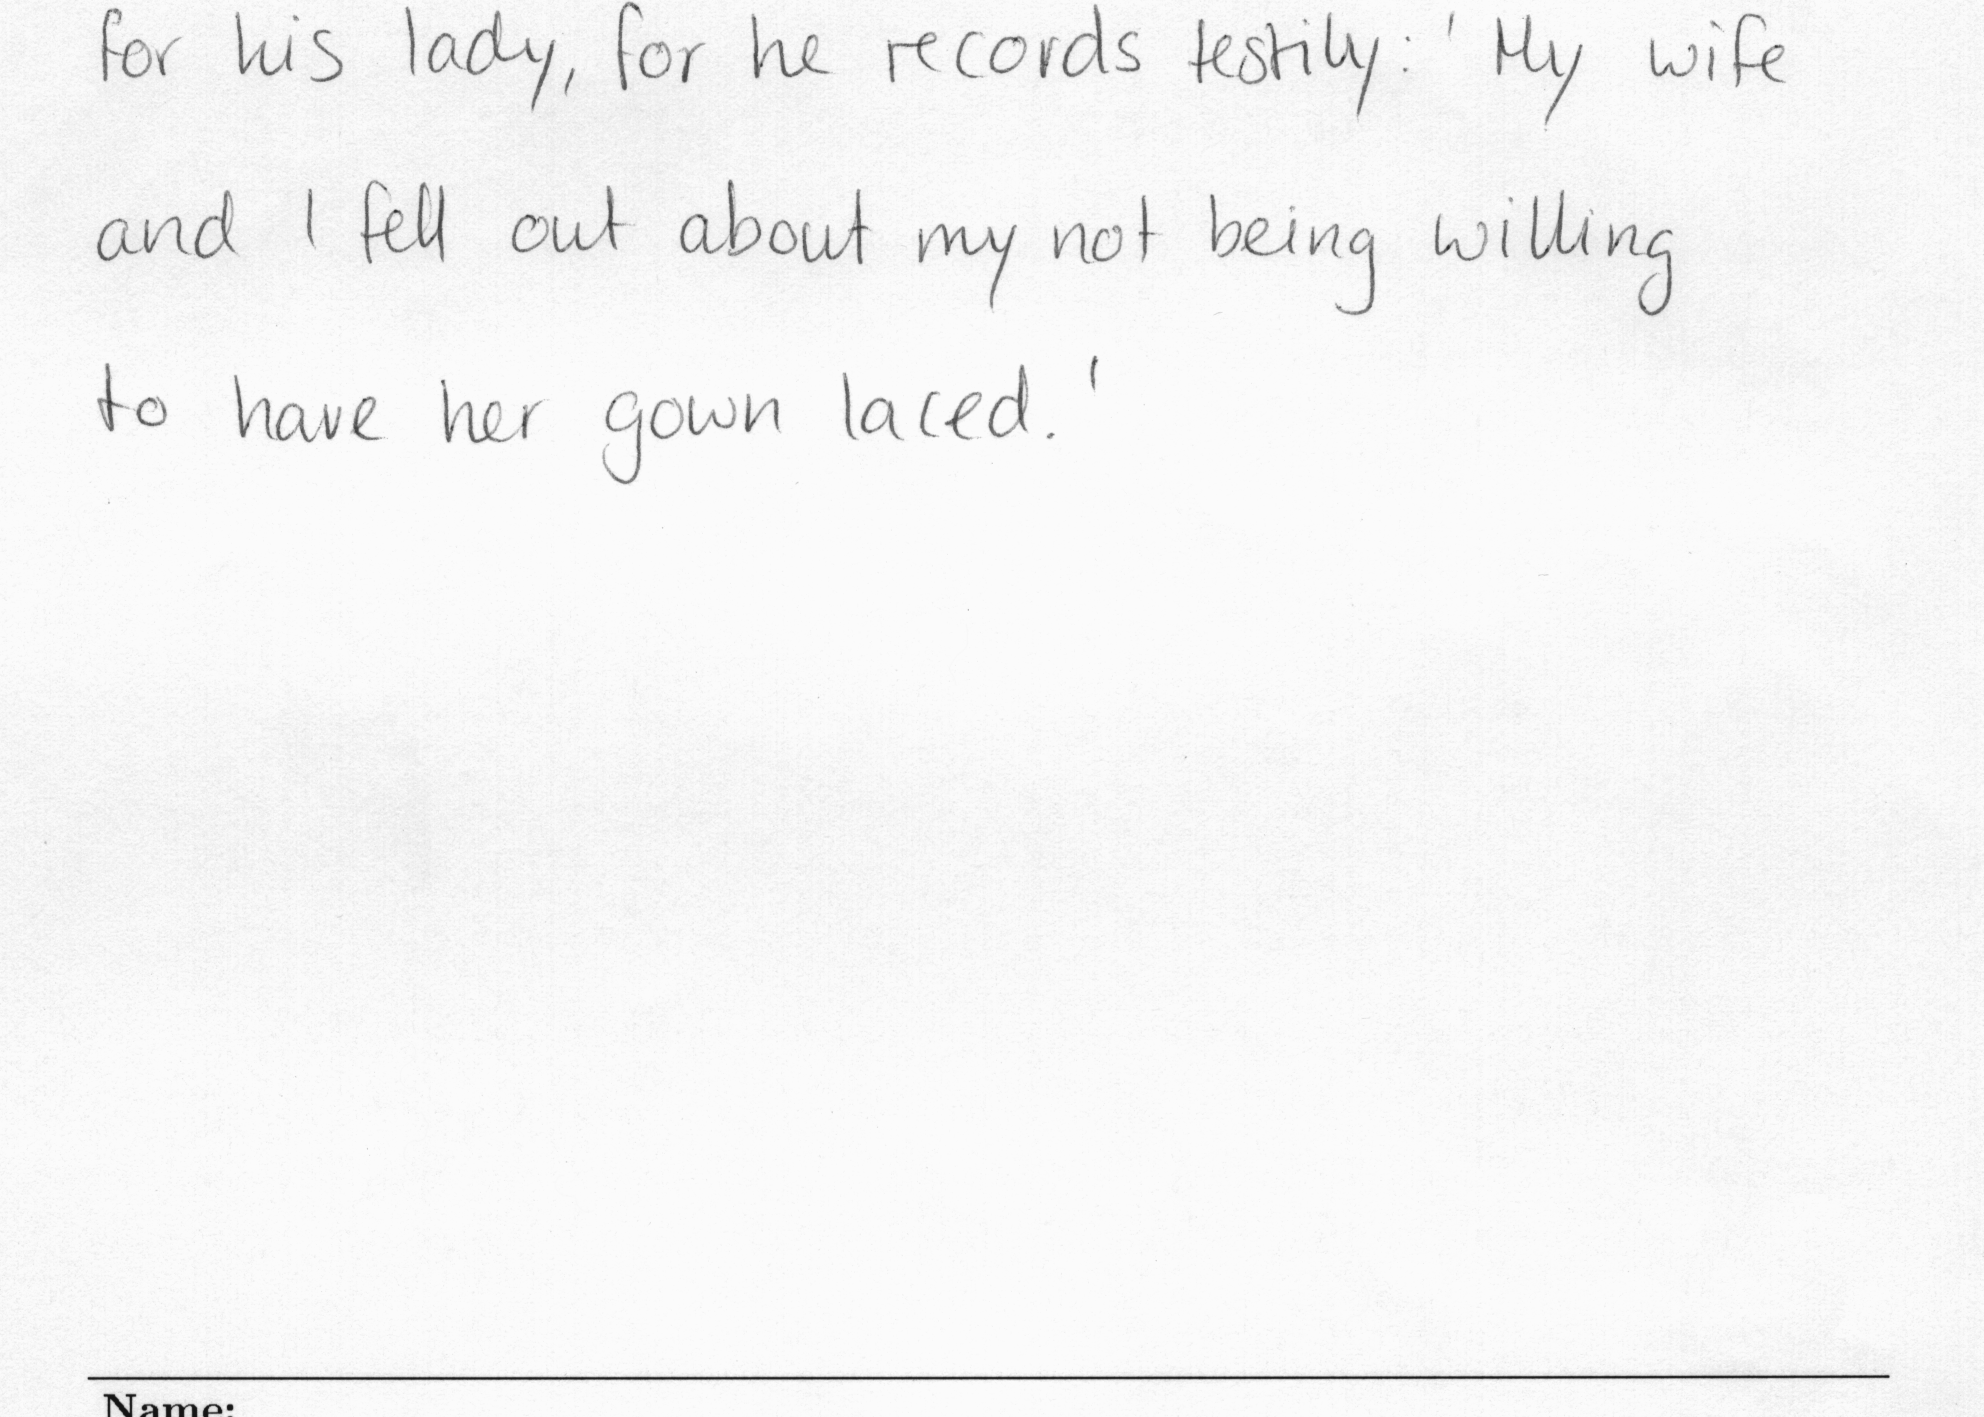 for his lady, for he records testily: 'My wife
and I fell out about my not being willing
to have her gown laced.'
Name: